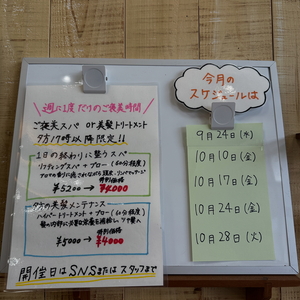 週に1度だけのご褒美時間
ご褒美スパ or 美髪トリートメント
夕方17時以降限定!!
1日の終わりに整うスパ
リフティングスパ + ブロー (60分程度)
特別価格
¥5200 → ¥4000
夕方の美髪メンテナンス
ハイパートリートメント + ブロー (60分程度)
特別価格
¥5000 → ¥4000
開催日はSNSまたはスタッフまで
今月の
スケジュールは
9月24日(水)
10月10日(金)
10月17日(金)
10月24日(金)
10月28日(火)